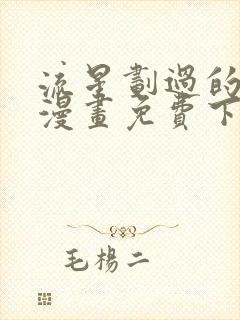 流星劃過的
漫畫免費下
毛楊二